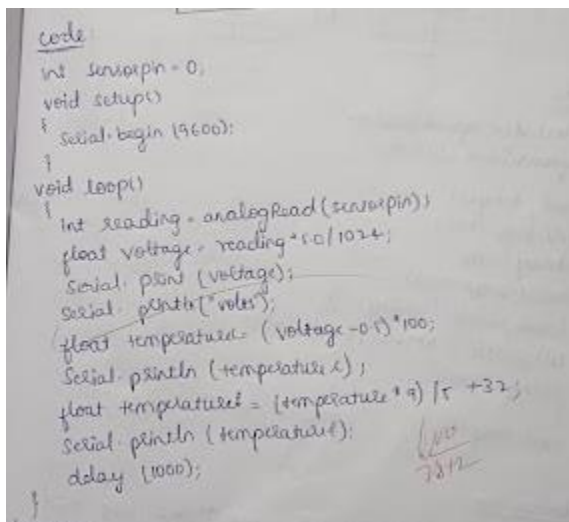 code
int sensorpin = 0;
void setup()
{
Serial.begin (9600);
}
void loop()
{
int reading = analogRead(sensorpin);
float voltage = reading * 5.0/1024;
serial. print (voltage);
serial. println("volts");
float temperaturec = (voltage - 0.5) * 100;
Serial. println (temperature c);
float temperaturef = (temperature * 9) / 5 + 32;
Serial. println (temperaturef);
delay (1000);
}